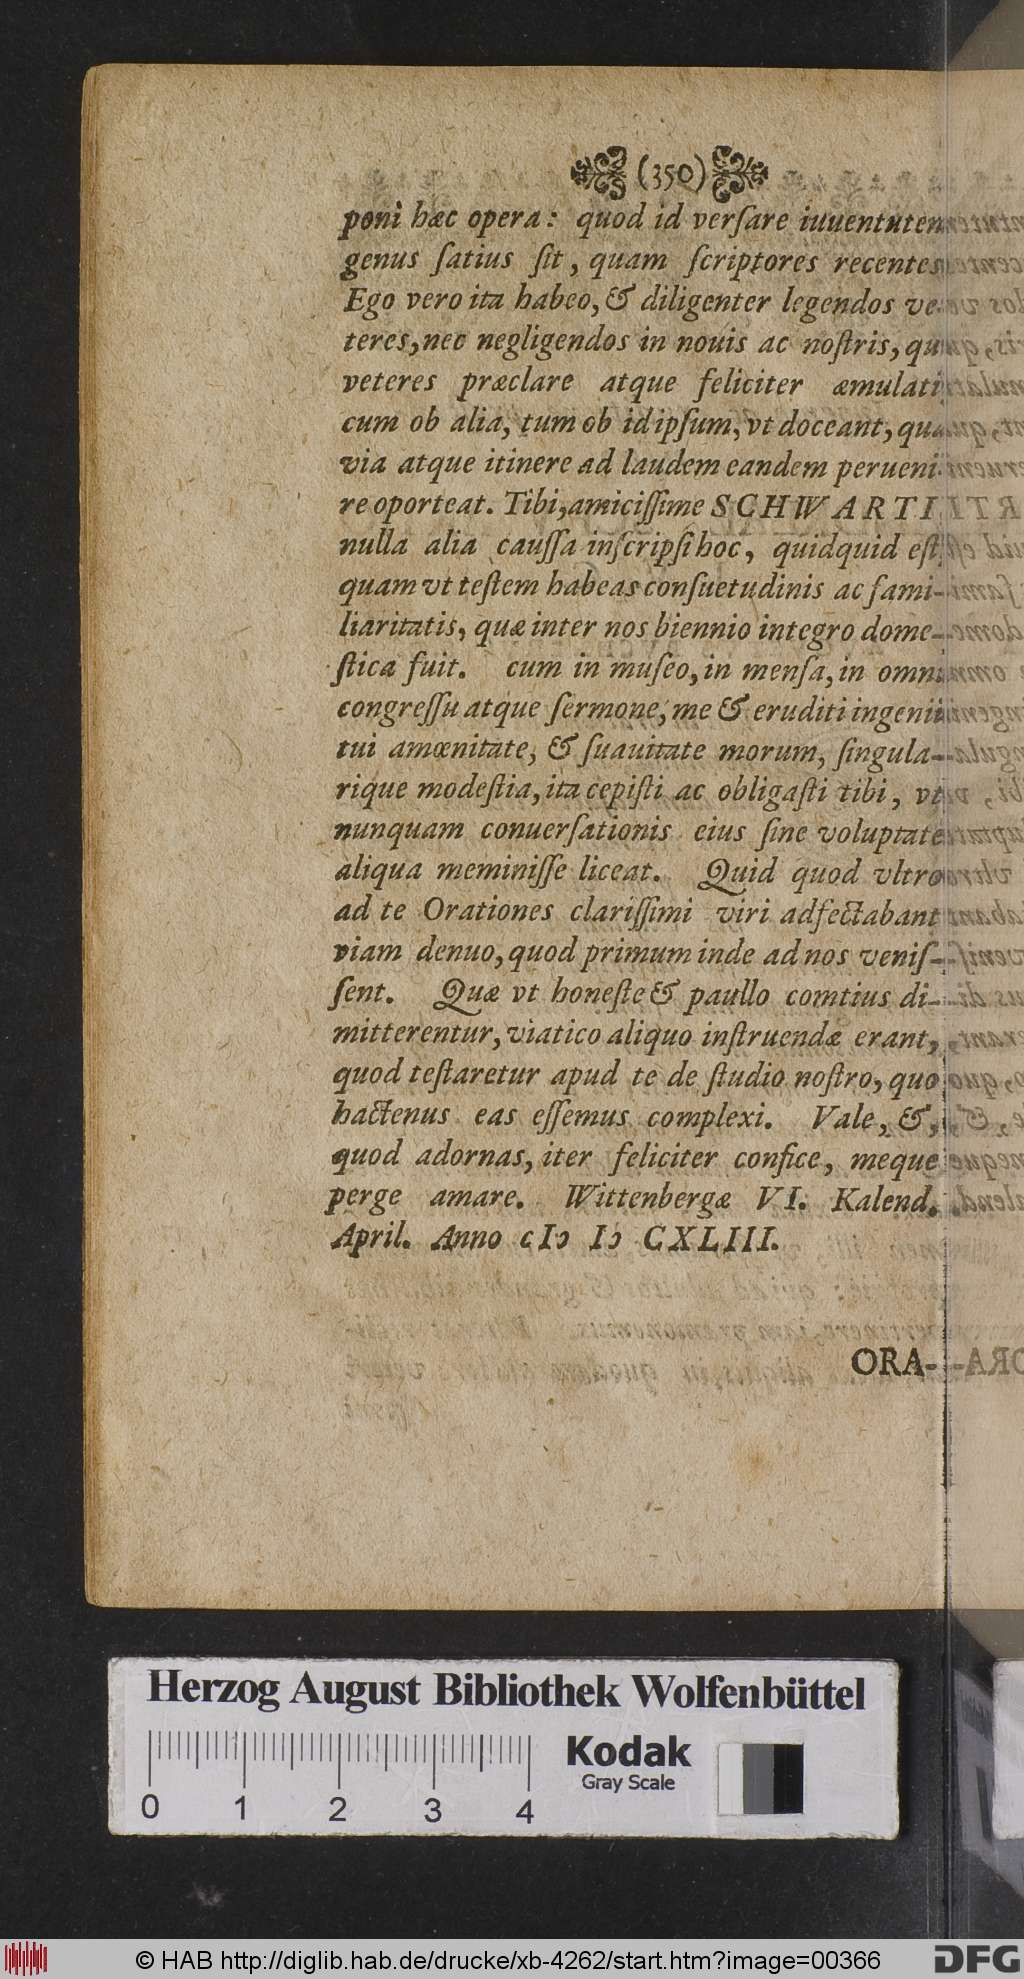 (350)
poni hæc opera: quod id verſare iuuentutem
genus ſatius ſit, quam ſcriptores recentes.
Ego vero ita habeo, & diligenter legendos ve-
teres, nec negligendos in nouis ac noſtris, qui
veteres præclare atque feliciter æmulati,
cum ob alia, tum ob id ipſum, vt doceant, qua
via atque itinere ad laudem eandem perueni-
re oporteat. Tibi, amiciſſime SCHWARTI
nulla alia cauſſa inſcripſi hoc, quidquid eſt,
quam vt teſtem habeas conſuetudinis ac fami-
liaritatis, quæ inter nos biennio integro dome-
ſtica fuit. cum in muſeo, in menſa, in omni
congreſſu atque ſermone, me & eruditi ingenii
tui amœnitate, & ſuauitate morum, ſingula-
rique modeſtia, ita cepiſti ac obligaſti tibi, vt
nunquam conuerſationis eius ſine voluptate
aliqua meminiſſe liceat. Quid quod vltro
ad te Orationes clariſſimi viri adfectabant
viam denuo, quod primum inde ad nos veniſ-
ſent. Quæ vt honeſte & paullo comtius di-
mitterentur, viatico aliquo inſtruendæ erant,
quod teſtaretur apud te de ſtudio noſtro, quo
hactenus eas eſſemus complexi. Vale, &,
quod adornas, iter feliciter confice, meque
perge amare. Wittenbergæ VI. Kalend.
April. Anno cIↄ Iↄ CXLIII.
ORA-
Herzog August Bibliothek Wolfenbüttel
Kodak
Gray Scale
0 1 2 3 4
© HAB http://diglib.hab.de/drucke/xb-4262/start.htm?image=00366
DFG